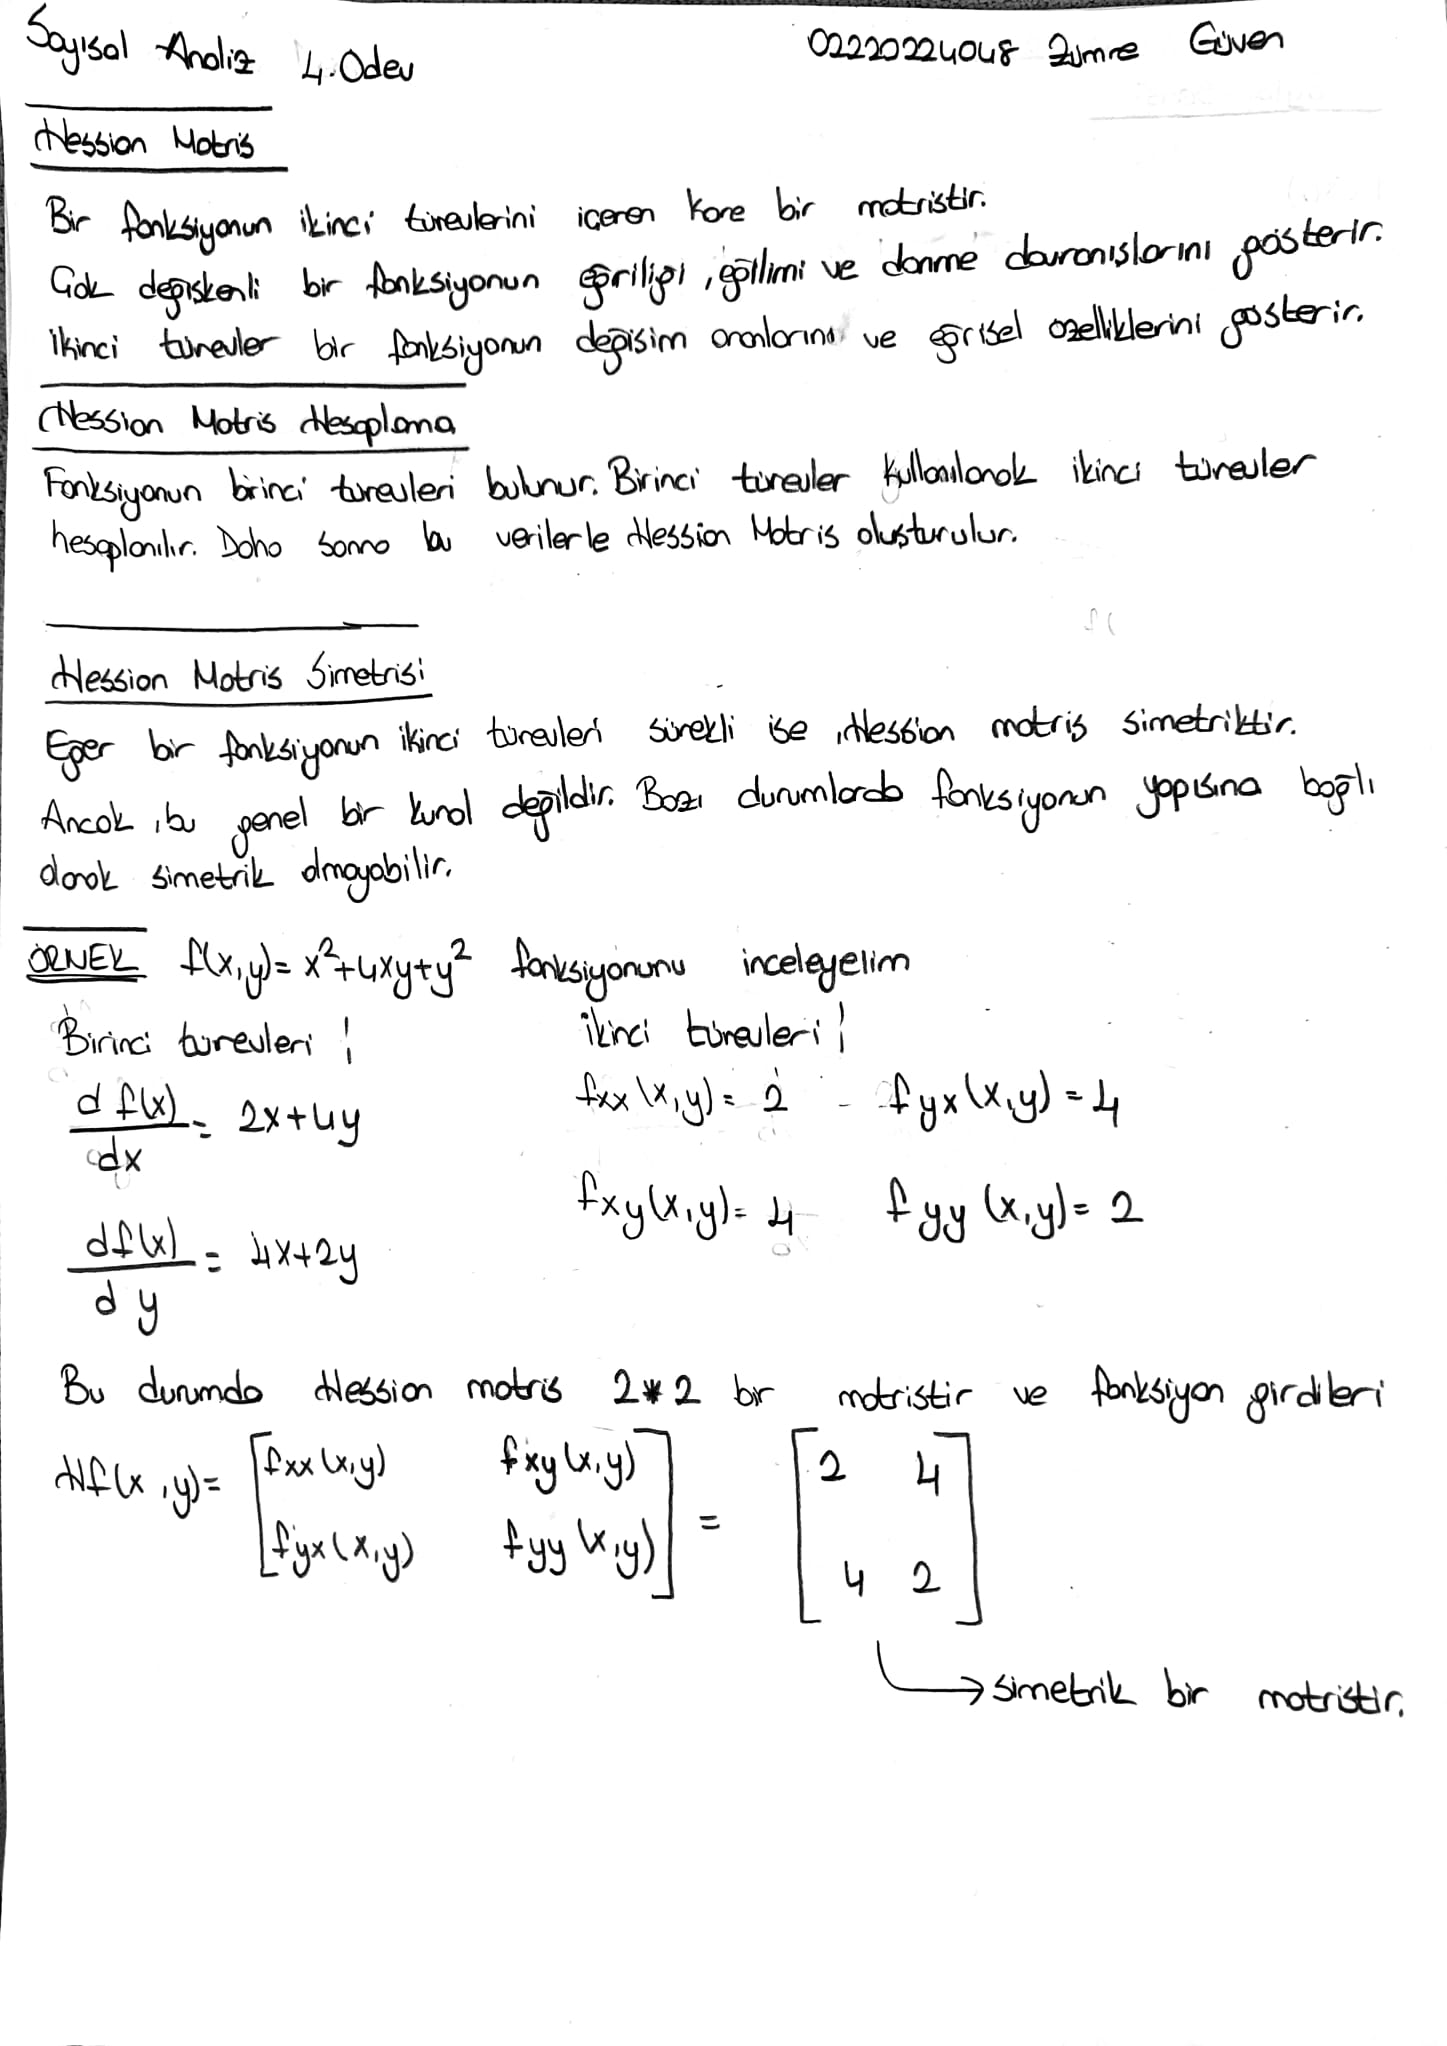 Sayısal Analiz 4.Odev 02220224048 Zümre Güven
Hessian Matris
Bir fonksiyonun ikinci türevlerini içeren kare bir matristir.
Çok değişkenli bir fonksiyonun eğriliği, eğilimi ve dönme davranışlarını gösterir.
İkinci türevler bir fonksiyonun değişim oranlarına ve eğrisel özelliklerini gösterir.
Hessian Matris Hesaplama
Fonksiyonun birinci türevleri bulunur. Birinci türevler kullanılarak ikinci türevler
hesaplanılır. Daha sonra bu verilerle Hessian Matris oluşturulur.
Hessian Matris Simetrisi
Eğer bir fonksiyonun ikinci türevleri sürekli ise, Hessian matris simetriktir.
Ancak, bu genel bir kural değildir. Bazı durumlarda fonksiyonun yapısına bağlı
olarak simetrik olmayabilir.
ÖRNEK f(x,y)= x²+4xy+y² fonksiyonunu inceleyelim
Birinci türevleri ! ikinci türevleri !
d f(x)/dx = 2x+4y fxx(x,y)= 2 fyx(x,y)=4
df(x)/dy = 4x+2y fxy(x,y)= 4 fyy(x,y)= 2
Bu durumda Hessian matris 2*2 bir matristir ve fonksiyon girdileri
Hf(x,y)= [fxx(x,y) fxy(x,y)] = [2 4]
[fyx(x,y) fyy(x,y)] [4 2]
→ simetrik bir matristir.